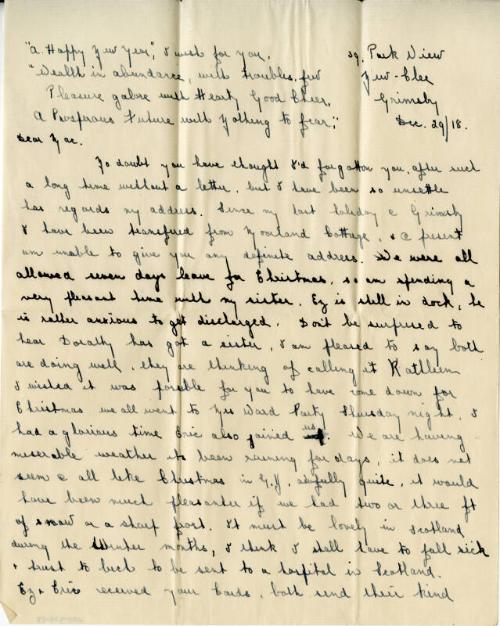 "A Happy New Year", I wish for you,
"Wealth in abundance, with troubles few
Pleasure galore with Hearty Good Cheer,
A Prosperous Future with Nothing to fear;"
Park View
New-Clee
Grimsby
Dec. 29/18.
Dear
No doubt you have thought I'd forgotten you, after such
a long time without a letter, but I have been so unsettle
has regards my address. Since my last holiday @ Grimsby
I have been transfered from Cottage, & @ present
am unable to give you any definite address. We were all
allowed seven days leave for Christmas, so am spending a
very pleasant time with my sister. is still in dock, he
is rather anxious to get discharged. Don't be surprised to
hear Dorothy has got a sister, I am pleased to say both
are doing well, they are thinking of calling it Kathleen
I wished it was possible for you to have come down for
Christmas we all went to Mrs Ward Party Thursday night, I
had a glorious time Eric also joined us. We are having
miserable weather its been raining for days, it does not
seem @ all like Christmas in G.Y, awfully quite, it would
have been much pleasanter if we had two or three ft
of snow or a sharp frost. It must be lovely in Scotland
during the Winter months, I think I shall have to fall sick
& trust to luck to be sent to a hospital in Scotland.
& Eric received your Cards, both send their kind